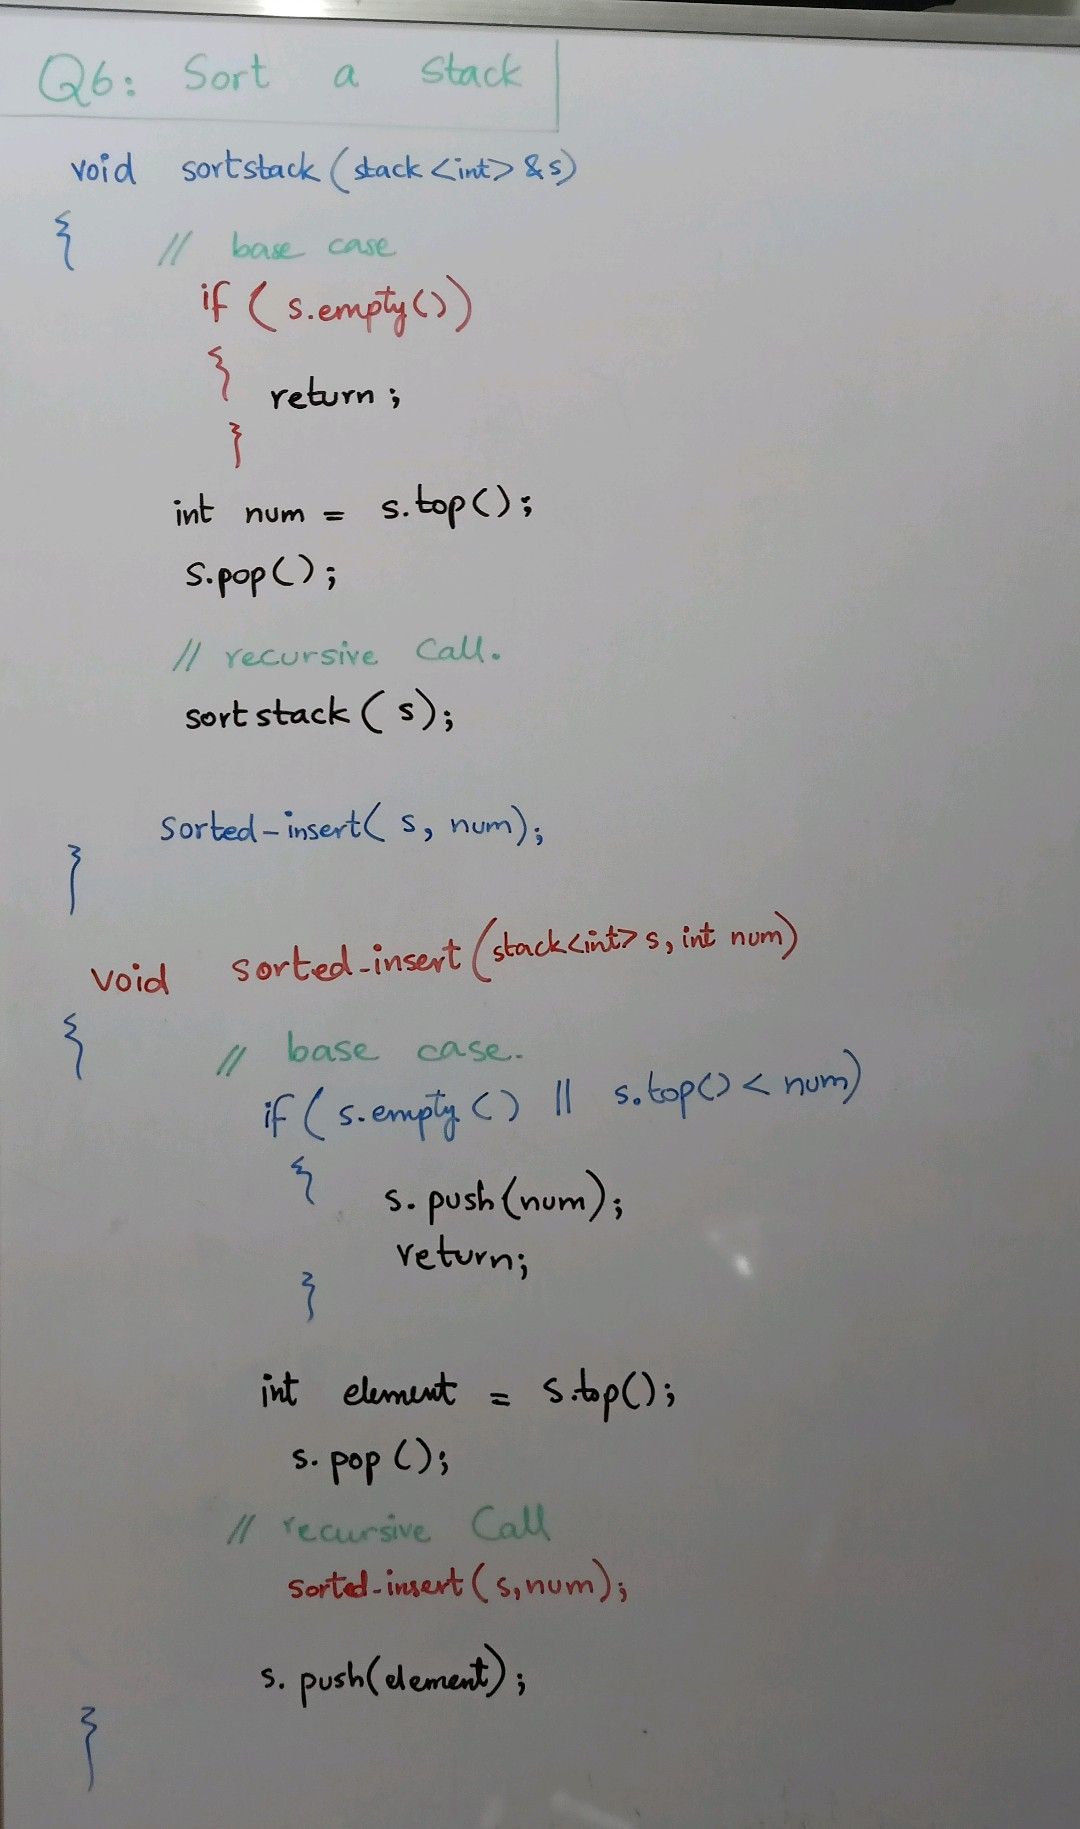 Q6: Sort a Stack
void sortstack (stack <int> &s)
{ // base case
if ( s.empty())
{
return ;
}
int num = s.top();
s.pop();
// recursive Call.
sortstack ( s);
sorted-insert( s, num);
}
void sorted-insert (stack<int> s, int num)
{ // base case.
if ( s.empty () || s.top() < num)
{ s. push (num);
return;
}
int element = s.top();
s. pop ();
// recursive Call
sorted-insert ( s,num);
s. push(element);
}